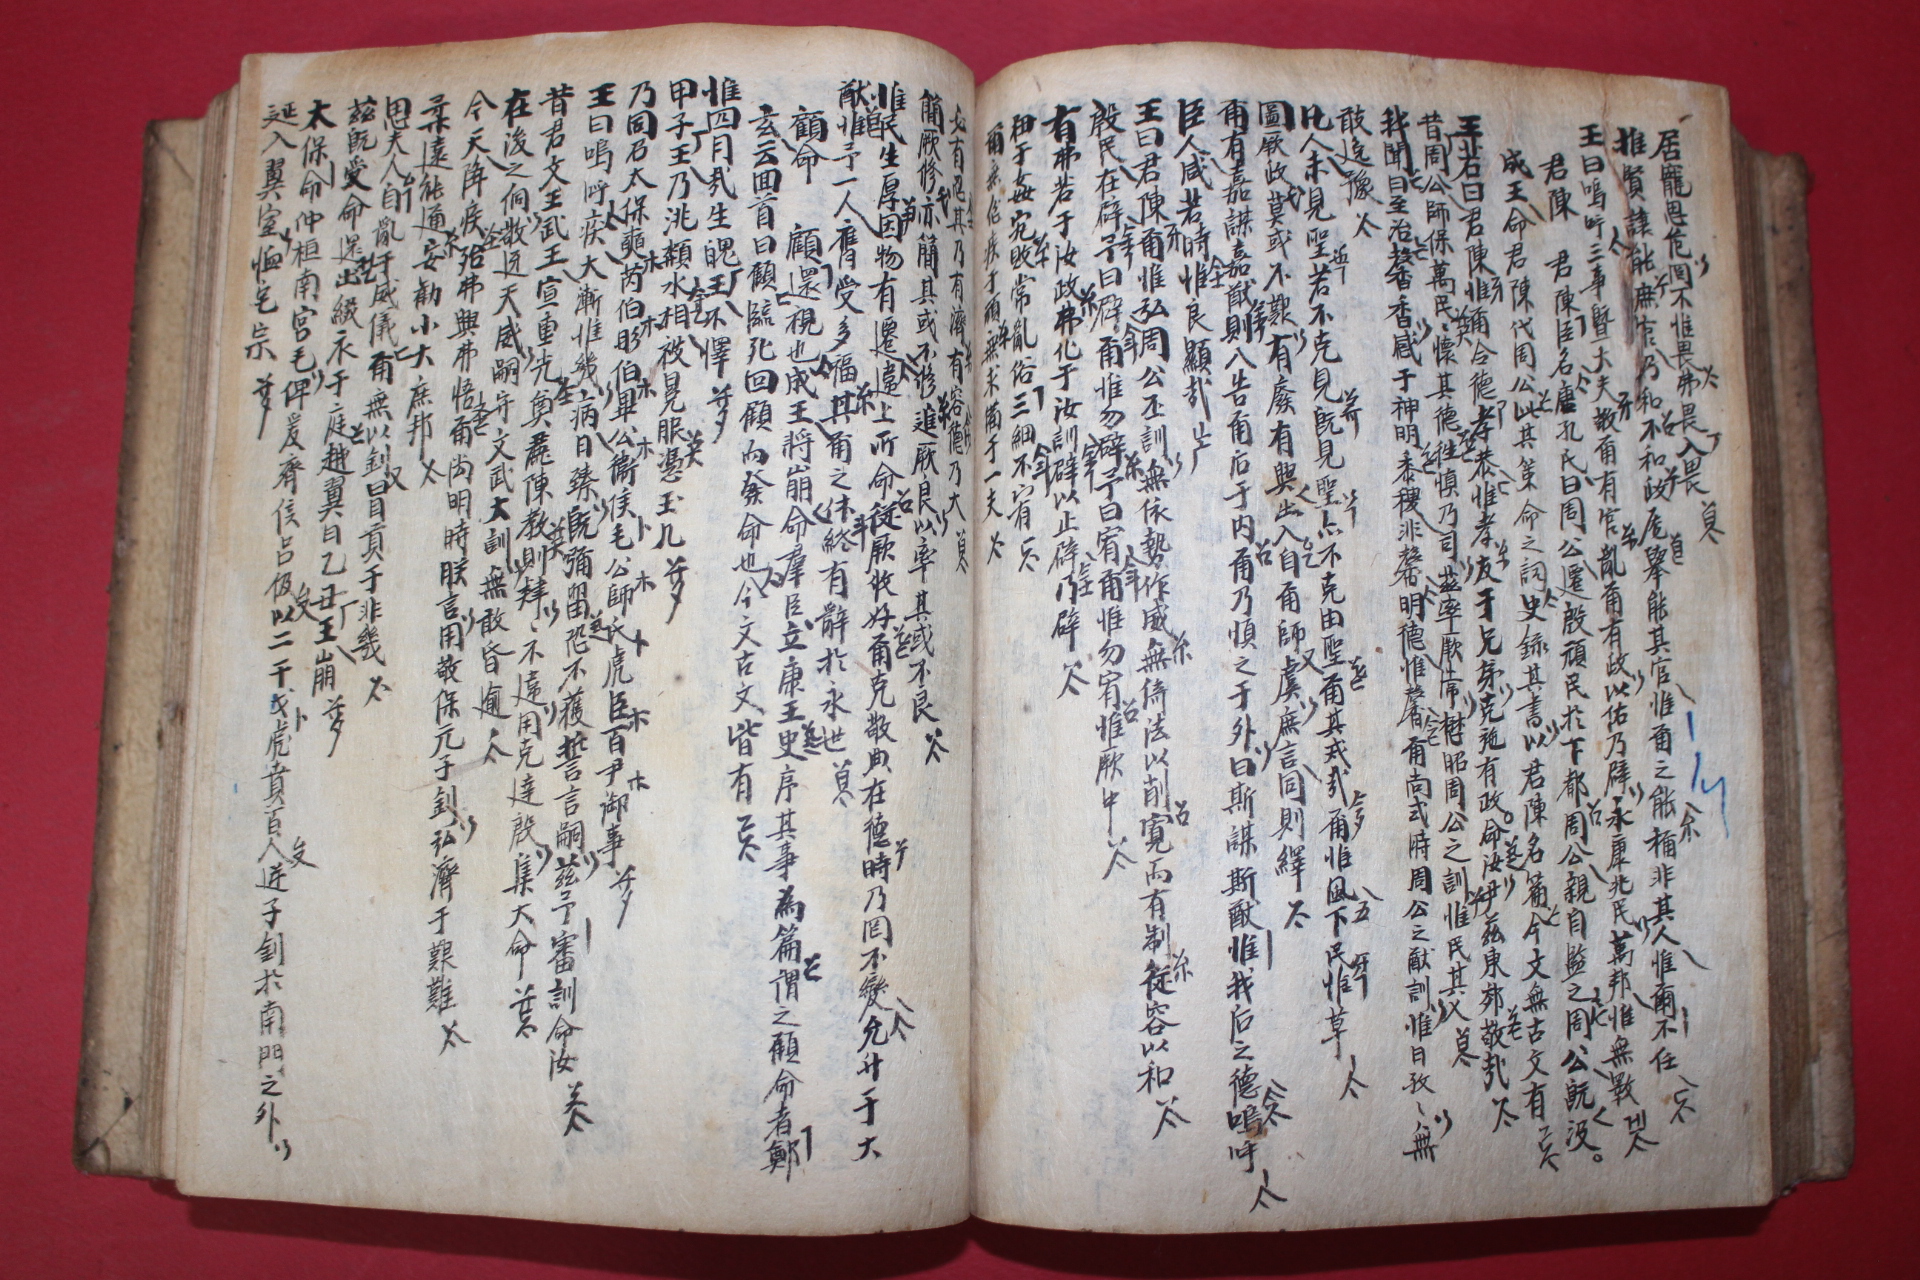 居寵思危罔不惟畏弗畏入畏
推賢讓能庶官乃和不和政厖擧能其官惟爾之能稱非其人惟爾不任
王曰嗚呼三事曁大夫敬爾有官亂爾有政以佑乃辟永康兆民萬邦惟無斁
君陳 君陳臣名唐孔氏曰周公遷殷頑民於下都周公親自監之周公旣沒
成王命君陳代周公此其策命之詞史錄其書以君陳名篇今文無古文有
王若曰君陳惟爾令德孝恭惟孝友于兄弟克施有政命汝尹玆東郊敬哉
昔周公師保萬民民懷其德徃愼乃司玆率厥常懋昭周公之訓惟民其乂
我聞曰至治馨香感于神明黍稷非馨明德惟馨爾尙式時周公之猷訓惟日孜孜無
敢逸豫
凡人未見聖若不克見旣見聖亦不克由聖爾其戒哉爾惟風下民惟草
圖厥政莫或不艱有廢有興出入自爾師虞庶言同則繹
爾有嘉謀嘉猷則入告爾后于內爾乃順之于外曰斯謀斯猷惟我后之德嗚呼
臣人咸若時惟良顯哉
王曰君陳爾惟弘周公丕訓無依勢作威無倚法以削寬而有制從容以和
殷民在辟予曰辟爾惟勿辟予曰宥爾惟勿宥惟厥中
有弗若于汝政弗化于汝訓辟以止辟乃辟
狃于姦宄敗常亂俗三細不宥
爾無忿疾于頑無求備于一夫
必有忍其乃有濟有容德乃大
簡厥修亦簡其或不修進厥良以率其或不良
惟民生厚因物有遷違上所命從厥攸好爾克敬典在德時乃罔不變允升于大
猷惟予一人膺受多福其爾之休終有辭於永世
顧命 顧還視也成王將崩命羣臣立康王史序其事為篇謂之顧命者鄭
玄云回首曰顧臨死回顧而發命也今文古文皆有
惟四月哉生魄王不懌
甲子王乃洮頮水相被冕服憑玉几
乃同召太保奭芮伯彤伯畢公衛侯毛公師氏虎臣百尹御事
王曰嗚呼疾大漸惟幾病日臻旣彌留恐不獲誓言嗣玆予審訓命汝
昔君文王武王宣重光奠麗陳敎則肄肄不違用克達殷集大命
在後之侗敬迓天威嗣守文武大訓無敢昏逾
今天降疾殆弗興弗悟爾尙明時朕言用敬保元子釗弘濟于艱難
柔遠能邇安勸小大庶邦
思夫人自亂于威儀爾無以釗冒貢于非幾
玆旣受命還出綴衣于庭越翼日乙丑王崩
太保命仲桓南宮毛俾爰齊侯呂伋以二干戈虎賁百人逆子釗於南門之外
延入翼室恤宅宗